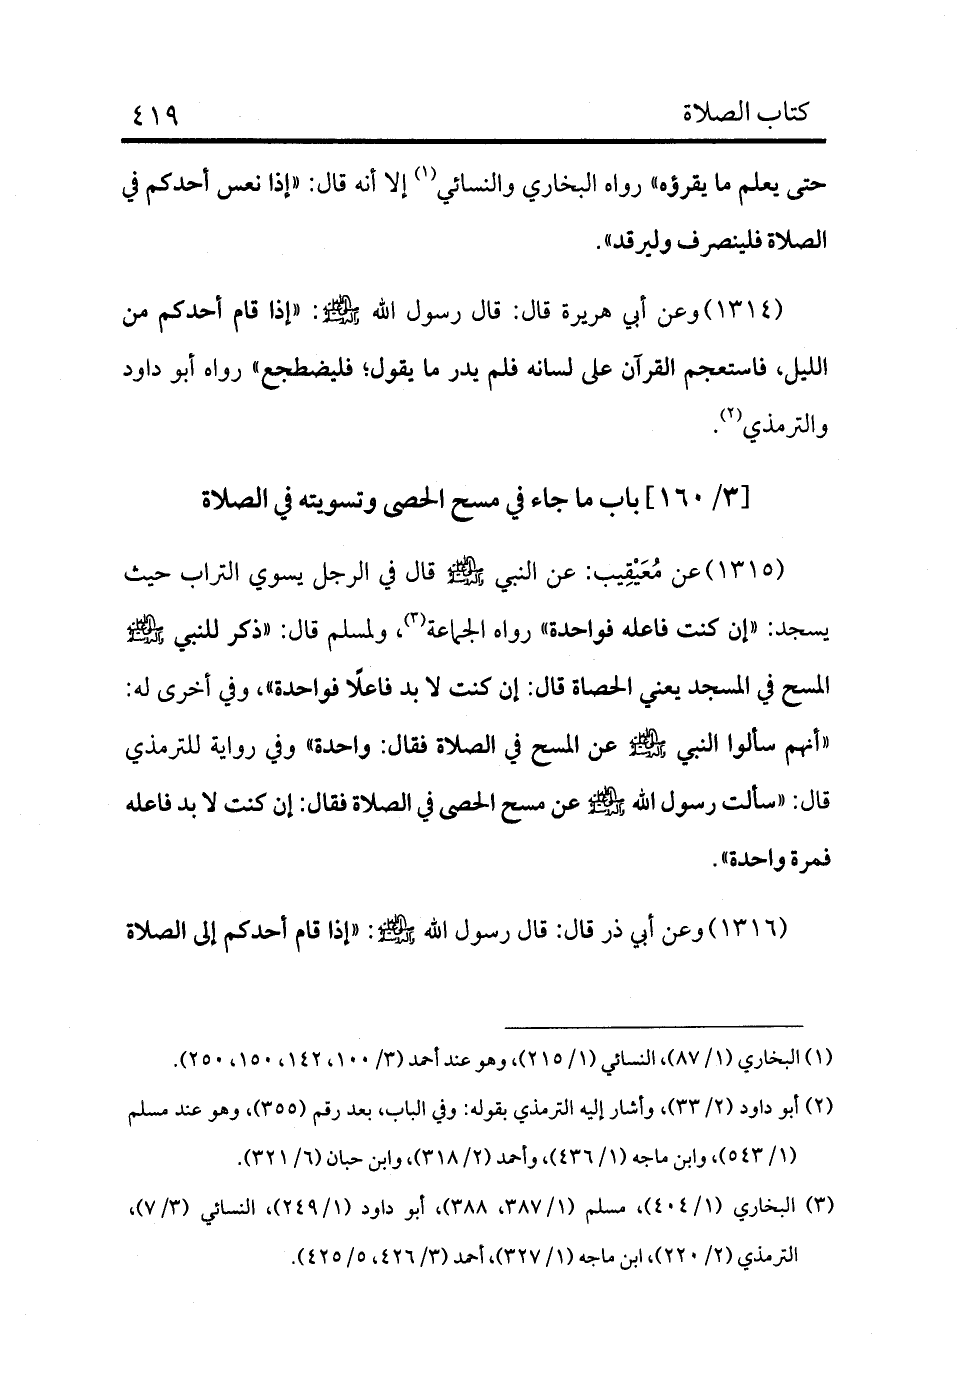 كتاب الصلاة ٤١٩
حتى يعلم ما يقرؤه» رواه البخاري والنسائي(١) إلا أنه قال: «إذا نعس أحدكم في
الصلاة فلينصرف وليرقد».
(١٣١٤) وعن أبي هريرة قال: قال رسول الله ﷺ: «إذا قام أحدكم من
الليل، فاستعجم القرآن على لسانه فلم يدر ما يقول؛ فليضطجع» رواه أبو داود
والترمذي(٢).
[٣/ ١٦٠] باب ما جاء في مسح الحصى وتسويته في الصلاة
(١٣١٥) عن مُعَيْقِيب: عن النبي ﷺ قال في الرجل يسوي التراب حيث
يسجد: «إن كنت فاعله فواحدة» رواه الجماعة(٣)، ولمسلم قال: «ذكر للنبي ﷺ
المسح في المسجد يعني الحصاة قال: إن كنت لا بد فاعلًا فواحدة»، وفي أخرى له:
«أنهم سألوا النبي ﷺ عن المسح في الصلاة فقال: واحدة» وفي رواية للترمذي
قال: «سألت رسول الله ﷺ عن مسح الحصى في الصلاة فقال: إن كنت لا بد فاعله
فمرة واحدة».
(١٣١٦) وعن أبي ذر قال: قال رسول الله ﷺ: «إذا قام أحدكم إلى الصلاة
(١) البخاري (١/ ٨٧)، النسائي (١/ ٢١٥)، وهو عند أحمد (٣/ ١٠٠، ١٤٢، ١٥٠، ٢٥٠).
(٢) أبو داود (٢/ ٣٣)، وأشار إليه الترمذي بقوله: وفي الباب، بعد رقم (٣٥٥)، وهو عند مسلم
(١/ ٥٤٣)، وابن ماجه (١/ ٤٣٦)، وأحمد (٢/ ٣١٨)، وابن حبان (٦/ ٣٢١).
(٣) البخاري (١/ ٤٠٤)، مسلم (١/ ٣٨٧، ٣٨٨)، أبو داود (١/ ٢٤٩)، النسائي (٣/ ٧)،
الترمذي (٢/ ٢٢٠)، ابن ماجه (١/ ٣٢٧)، أحمد (٣/ ٤٢٦، ٥/ ٤٢٥).